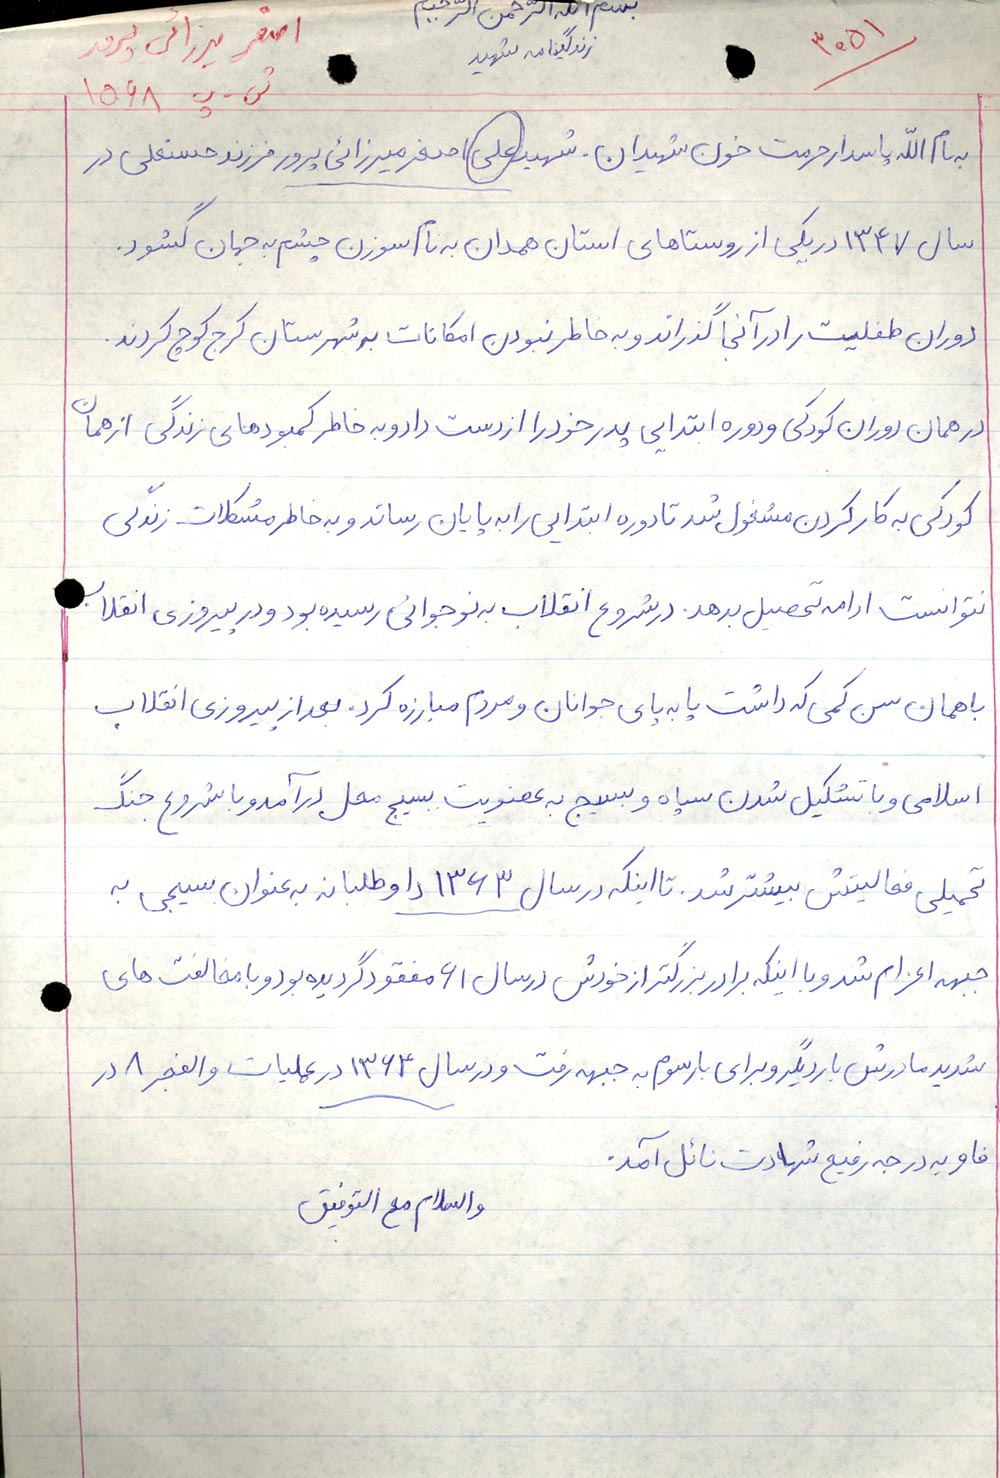 بسم الله الرحمن الرحیم
زندگینامه شهید
۳۰۵۱
اصغر میرزائی پرور
ش - پ ۱۵۶۸
به نام الله پاسدار حرمت خون شهیدان. شهید علی اصغر میرزائی پرور فرزند حسنعلی در
سال ۱۳۴۷ در یکی از روستاهای استان همدان به نام سوزن چشم به جهان گشود.
دوران طفلیت را در آنجا گذراند و به خاطر نبودن امکانات به شهرستان کرج کوچ کردند.
در همان دوران کودکی و دوره ابتدایی پدر خود را از دست داد و به خاطر کمبودهای زندگی از همان
کودکی به کار کردن مشغول شد تا دوره ابتدایی را به پایان رساند و به خاطر مشکلات زندگی
نتوانست ادامه تحصیل بدهد. در شروع انقلاب به نوجوانی رسیده بود و در پیروزی انقلاب
با همان سن کمی که داشت پا به پای جوانان و مردم مبارزه کرد. بعد از پیروزی انقلاب
اسلامی و با تشکیل شدن سپاه و بسیج به عضویت بسیج محل درآمد و با شروع جنگ
تحمیلی فعالیتش بیشتر شد. تا اینکه در سال ۱۳۶۳ داوطلبانه به عنوان بسیجی به
جبهه اعزام شد و با اینکه برادر بزرگتر از خودش در سال ۶۱ مفقود گردیده بود و با مخالفت های
شدید مادرش بار دیگر و برای بار سوم به جبهه رفت و در سال ۱۳۶۴ در عملیات والفجر ۸ در
فاو به درجه رفیع شهادت نائل آمد.
والسلام مع التوفیق